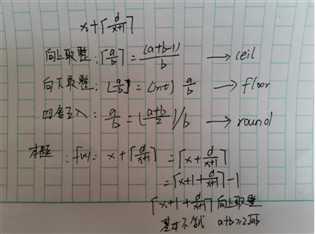 x+⌈d/(x+1)⌉
向上取整:⌈a/b⌉=(a+b-1)/b → ceil
向下取整:⌊a/b⌋=(int) a/b → floor
四舍五入:a/b=(a+b/2)/b → round
本题:f(x)=x+⌈d/(x+1)⌉=⌈x+d/(x+1)⌉
=⌈x+1+d/(x+1)⌉-1
⌈x+1+d/(x+1)⌉向上取整
基本不等式 a+b≥2√ab